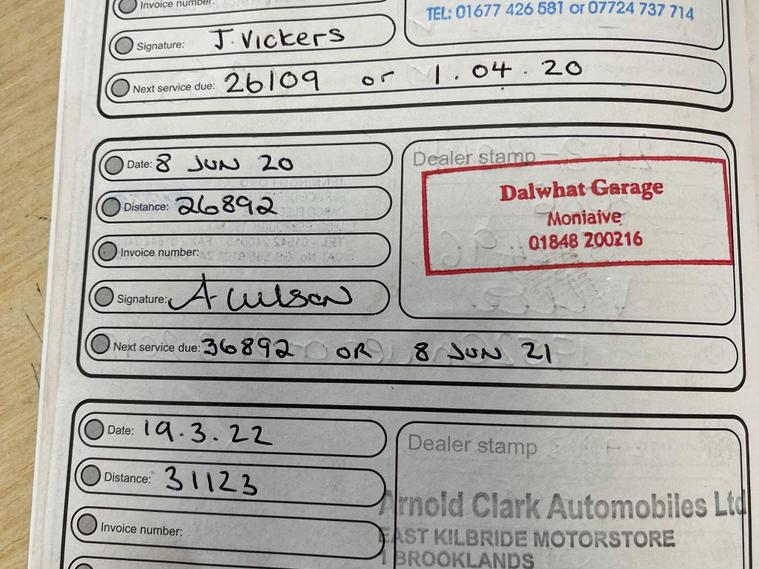 Invoice number:
TEL: 01677 426 581 or 07724 737 714
Signature: J. Vickers
Next service due: 26109 or 1.04.20
Date: 8 JUN 20
Dealer stamp
Distance: 26892
Dalwhat Garage
Moniaive
01848 200216
Invoice number:
Signature: A Wilson
Next service due: 36892 OR 8 JUN 21
Date: 19.3.22
Dealer stamp
Distance: 31123
Arnold Clark Automobiles Ltd
Invoice number:
EAST KILBRIDE MOTORSTORE
1 BROOKLANDS